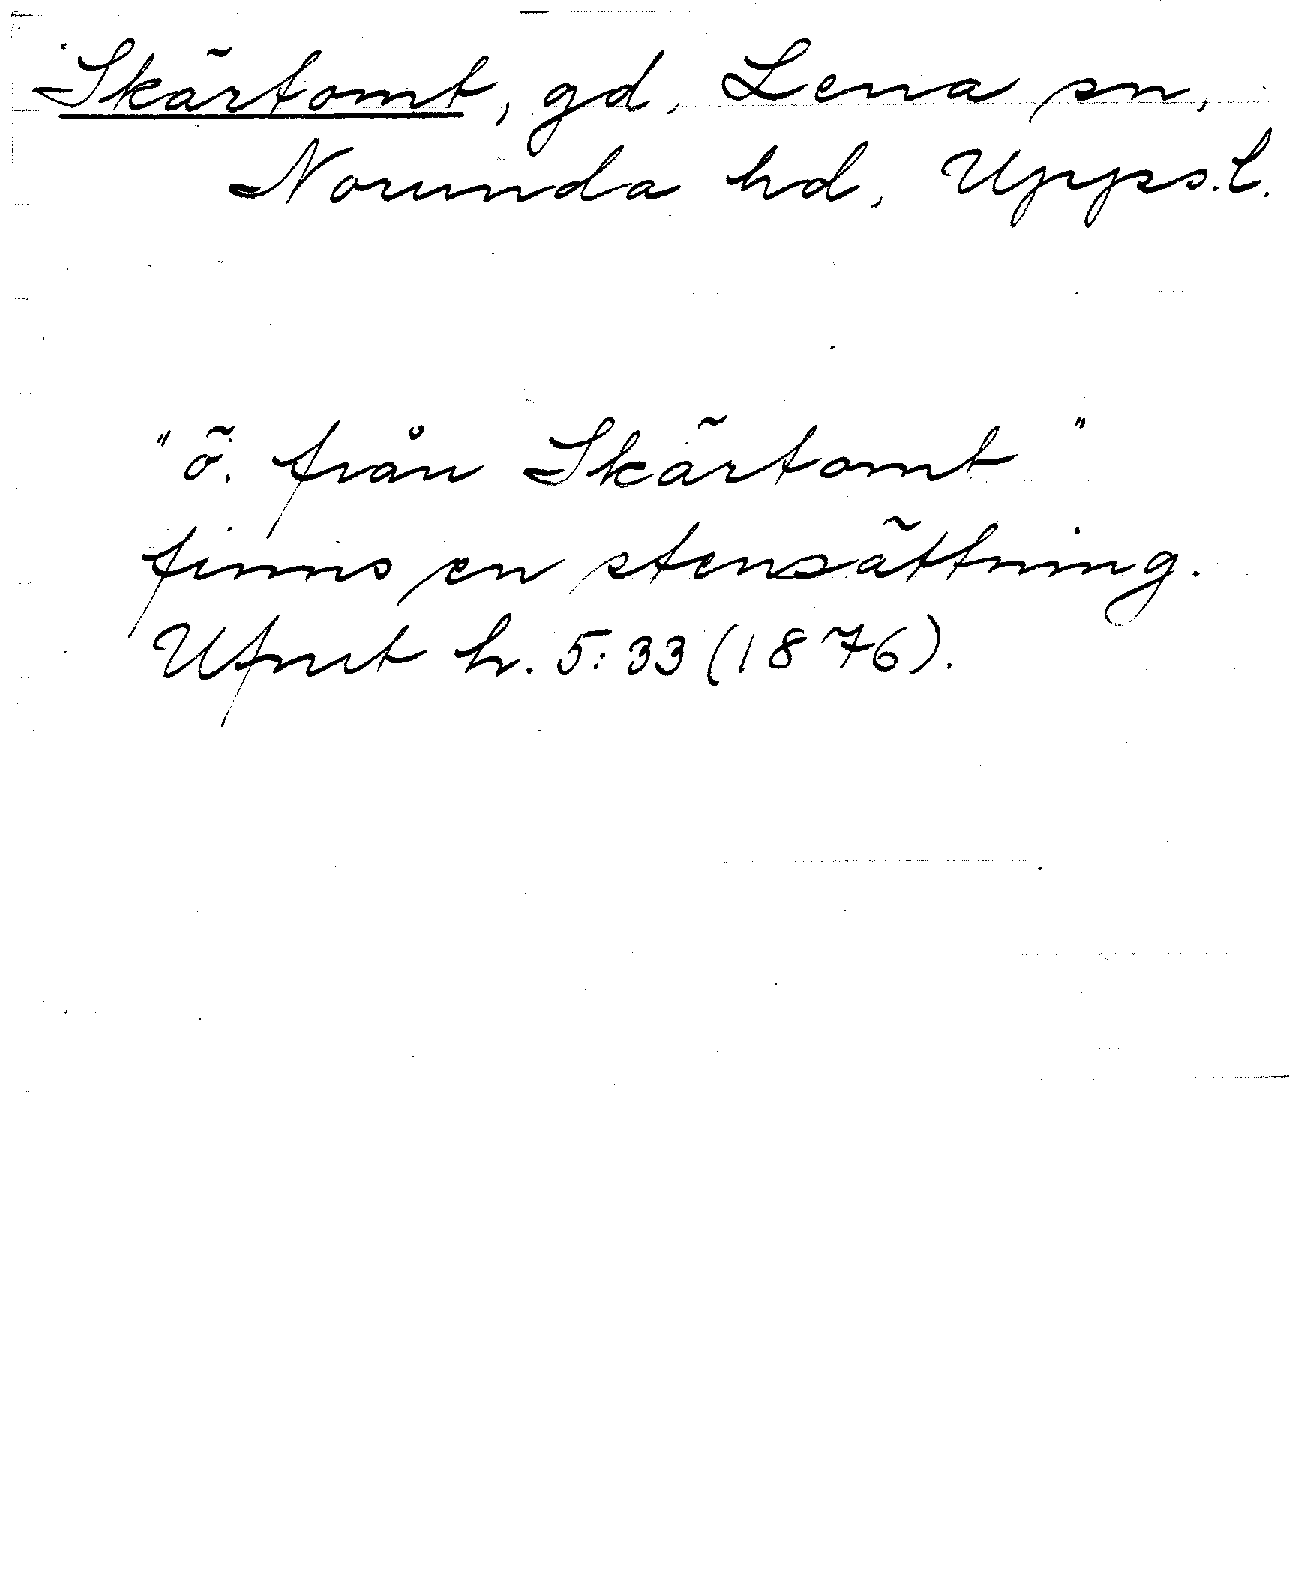 Skärtomt, gd, Lena sn,
Norunda hd, Upps. l.
"ö. från Skärtomt"
finns en stensättning.
Ufmt h. 5:33 (1876).